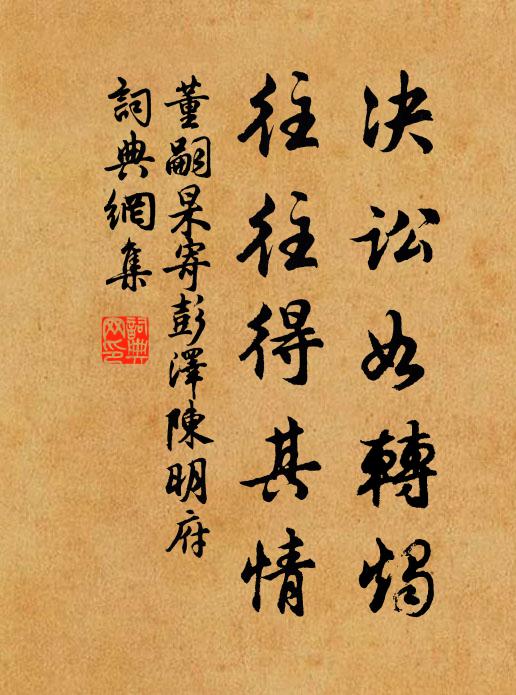 决讼如轉燭
往往得其情
董嗣杲寄彭澤陳明府
詞典網集
詞典網印